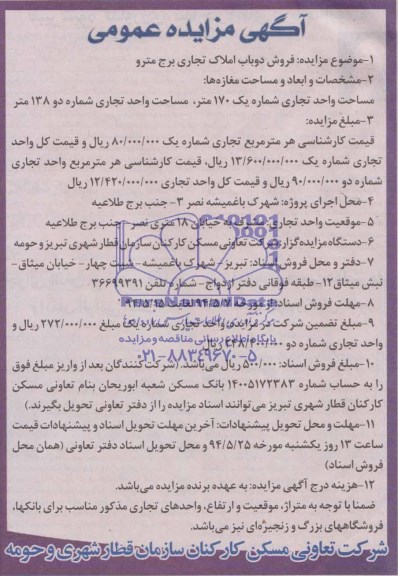 آگهی مزایده عمومی
۱-موضوع مزایده: فروش دوباب املاک تجاری برج مترو
۲-مشخصات و ابعاد و مساحت مغازه‌ها:
مساحت واحد تجاری شماره یک ۱۷۰ متر، مساحت واحد تجاری شماره دو ۱۳۸ متر
۳-مبلغ مزایده:
قیمت کارشناسی هر مترمربع تجاری شماره یک ۸۰/۰۰۰/۰۰۰ ریال و قیمت کل واحد
تجاری شماره یک ۱۳/۶۰۰/۰۰۰/۰۰۰ ریال، قیمت کارشناسی هر مترمربع واحد تجاری
شماره دو ۹۰/۰۰۰/۰۰۰ ریال و قیمت کل واحد تجاری ۱۲/۴۲۰/۰۰۰/۰۰۰ ریال
۴-محل اجرای پروژه: شهرک باغمیشه نصر ۳- جنب برج طلاعیه
۵-موقعیت واحد تجاری: خیابان ۱۸ متری نصر - جنب برج طلاعیه
۶-دستگاه مزایده‌گزار: شرکت تعاونی مسکن کارکنان سازمان قطار شهری تبریز و حومه
۷-دفتر و محل فروش اسناد: تبریز - شهرک باغمیشه - شت چهار - خیابان میثاق-
نبش میثاق ۱۲- طبقه فوقانی دفتر ازدواج - شماره تلفن ۳۶۶۹۹۳۹۱
۸-مهلت فروش اسناد: از مورخه ۹۴/۵/۷ لغایت ۹۴/۵/۱۵
۹-مبلغ تضمین شرکت در مزایده: واحد تجاری شماره یک مبلغ ۲۷۲/۰۰۰/۰۰۰ ریال و
واحد تجاری شماره دو ریال
پایگاه اطلاع رسانی مناقصه و مزایده
۰۲۱-۸۸۳۴۹۶۷۰-۵
۱۰-مبلغ فروش اسناد: ۵۰۰/۰۰۰ ریال می‌باشد. (شرکت‌کنندگان بعد از واریز مبلغ فوق
را به حساب شماره ۱۴۰۰۵۱۷۲۳۸۳ بانک مسکن شعبه ابوریحان بنام تعاونی مسکن
کارکنان قطار شهری تبریز می‌توانند اسناد مزایده را از دفتر تعاونی تحویل بگیرند.)
۱۱-مهلت و محل تحویل پیشنهادات: آخرین مهلت تحویل اسناد و پیشنهادات قیمت
ساعت ۱۳ روز یکشنبه مورخه ۹۴/۵/۲۵ و محل تحویل اسناد دفتر تعاونی (همان محل
فروش اسناد)
۱۲-هزینه درج آگهی مزایده: به عهده برنده مزایده می‌باشد.
ضمنا با توجه به متراژ، موقعیت و ارتفاع، واحدهای تجاری مذکور مناسب برای بانکها،
فروشگاههای بزرگ و زنجیره‌ای نیز می‌باشد.
شرکت تعاونی مسکن کارکنان سازمان قطار شهری و حومه